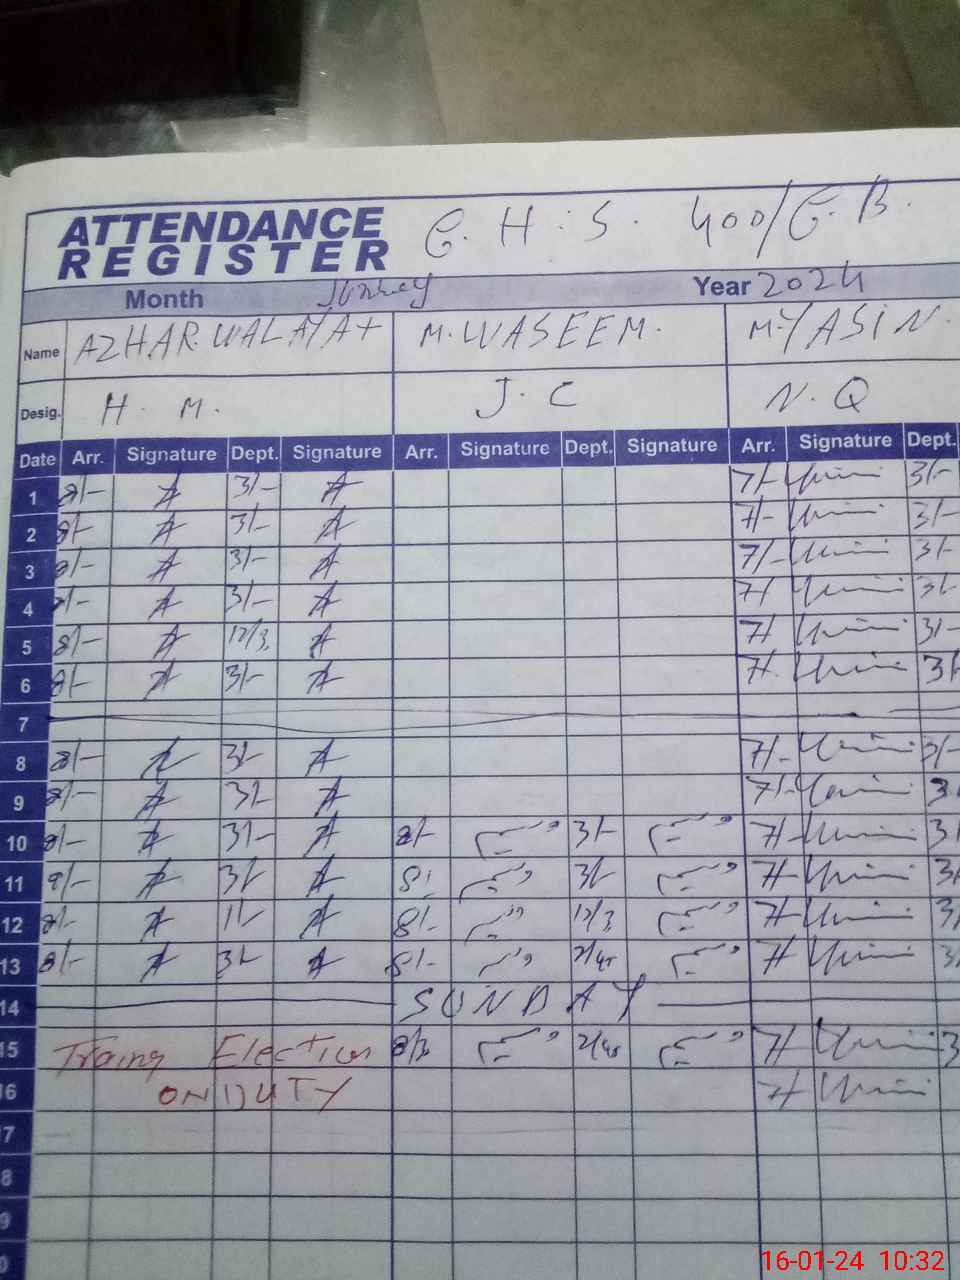 ATTENDANCE REGISTER G. H. S. 400/G.B.
Month Year 2024
Name AZHAR WALAYAT M. WASEEM. M. YASIN.
Desig. H. M. J. C N. Q
Date Arr. Signature Dept. Signature Arr. Signature Dept. Signature Arr. Signature Dept.
1 8/- 3/- 7/- 3/-
2 8/- 3/- 7/- 3/-
3 8/- 3/- 7/- 3/-
4 3/- 7/ 3/-
5 8/- 12/3. 7/ 3/-
6 8/- 3/- 7/. 3/-
7
8 8/- 3/- 7/- 3/-
9 8/- 3/- 7/- 3
10 8/- 3/- 8/- 3/- 7/- 3/
11 8/- 3/- 8/- 3/- 7/- 3/
12 8/- 1/- 8/- 12/3 7/- 3/
13 8/- 3/- 8/- 2/45 7/- 3/
14 SUNDAY
15 Traing Election 2/45 7/- 3
16 ON DUTY 7/
7
8
9
0
16-01-24 10:32